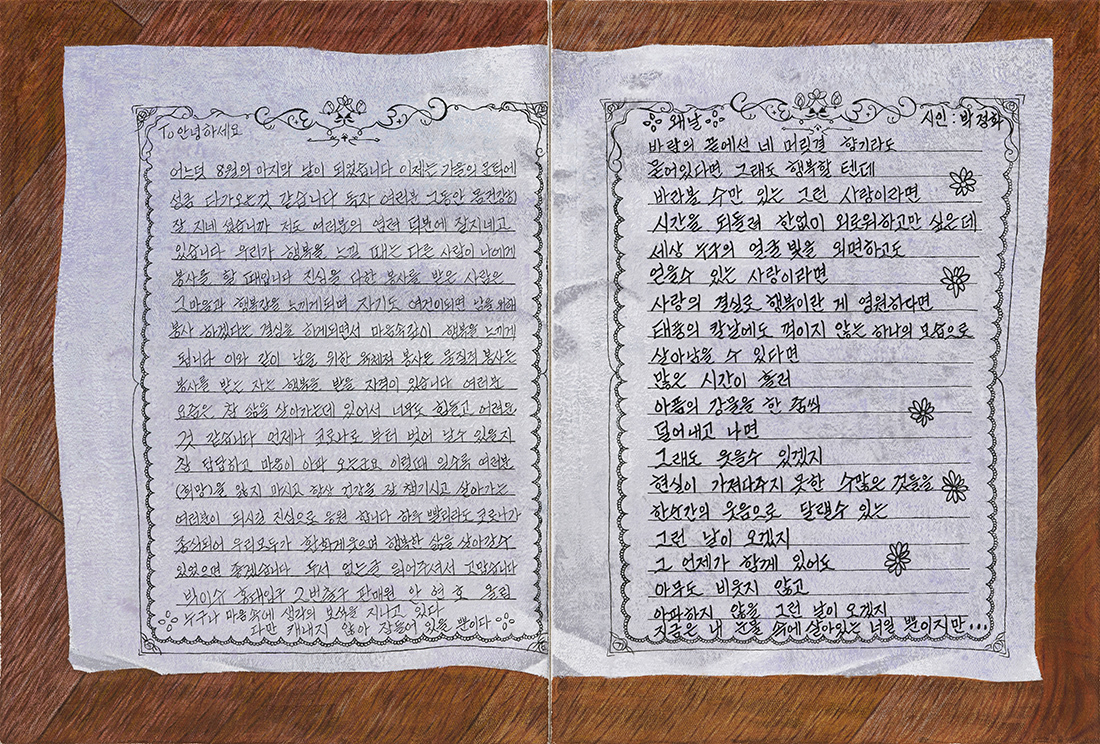 To 안녕하세요
어느덧 8월의 마지막 날이 되었습니다 이제는 가을의 문턱에
성큼 다가오는것 같습니다 독자 여러분 그동안 몸건강히
잘 지네 셨습니까 저도 여러분의 염려 덕분에 잘지네고
있습니다 우리가 행복을 느낄 때는 다른 사람이 나에게
봉사를 할 때입니다 진심을 다한 봉사를 받은 사람은
그마음과 행복감을 느끼게되며 자기도 여건이되면 남을 위해
봉사 하겠다는 결심을 하게되면서 마음속깊이 행복을 느끼게
됩니다 이와 같이 남을 위한 육체적 봉사든 물질적 봉사든
봉사를 받는 자는 행복을 받을 자격이 있습니다 여러분
요즘은 참 삶을 살아가는데 있어서 너무도 힘들고 어려운
것 같습니다 언제나 코로나로 부터 벗어 날수 있을지
참 답답하고 마음이 아파 오는군요 이럴때 있수록 여러분
(희망)을 잃지 마시고 항상 건강을 잘 챙기시고 살아가는
여러분이 되시길 진심으로 응원 합니다 하루 빨리라도 코로나가
종식되어 우리모두가 환하게웃으며 행복한 삶을 살아갈수
있었으면 좋겠습니다 두서 없는글 읽어주셔서 고맙습니다
빅이슈 홍대입구 2번출구 판매원 안 현 호 올림
누구나 마음속에 생각의 보석을 지니고 있다
다만 캐내지 않아 잠들어 있을 뿐이다
왜날
시인 : 박 정화
바람의 끝에선 네 머릿결 향기라도
묻어있다면 그래도 행복할 텐데
바라볼 수만 있는 그런 사랑이라면
시간을 되돌려 한없이 외로워하고만 싶은데
세상 누구의 얼굴 빛을 외면하고도
얻을수 있는 사랑이라면
사랑의 결실로 행복이란 게 영원하다면
태풍의 칼날에도 꺽이지 않는 하나의 모습으로
살아남을 수 있다면
많은 시간이 흘러
아픔의 강물을 한 줌씩
덜어내고 나면
그래도 웃을수 있겠지
현실이 가져다주지 못한 수많은 것들을
한순간의 웃음으로 달랠수 있는
그런 날이 오겠지
그 언제가 함께 있어도
아무도 비웃지 않고
아파하지 않을 그런 날이 오겠지
지금은 내 눈물 속에 살아있는 너일 뿐이지만...